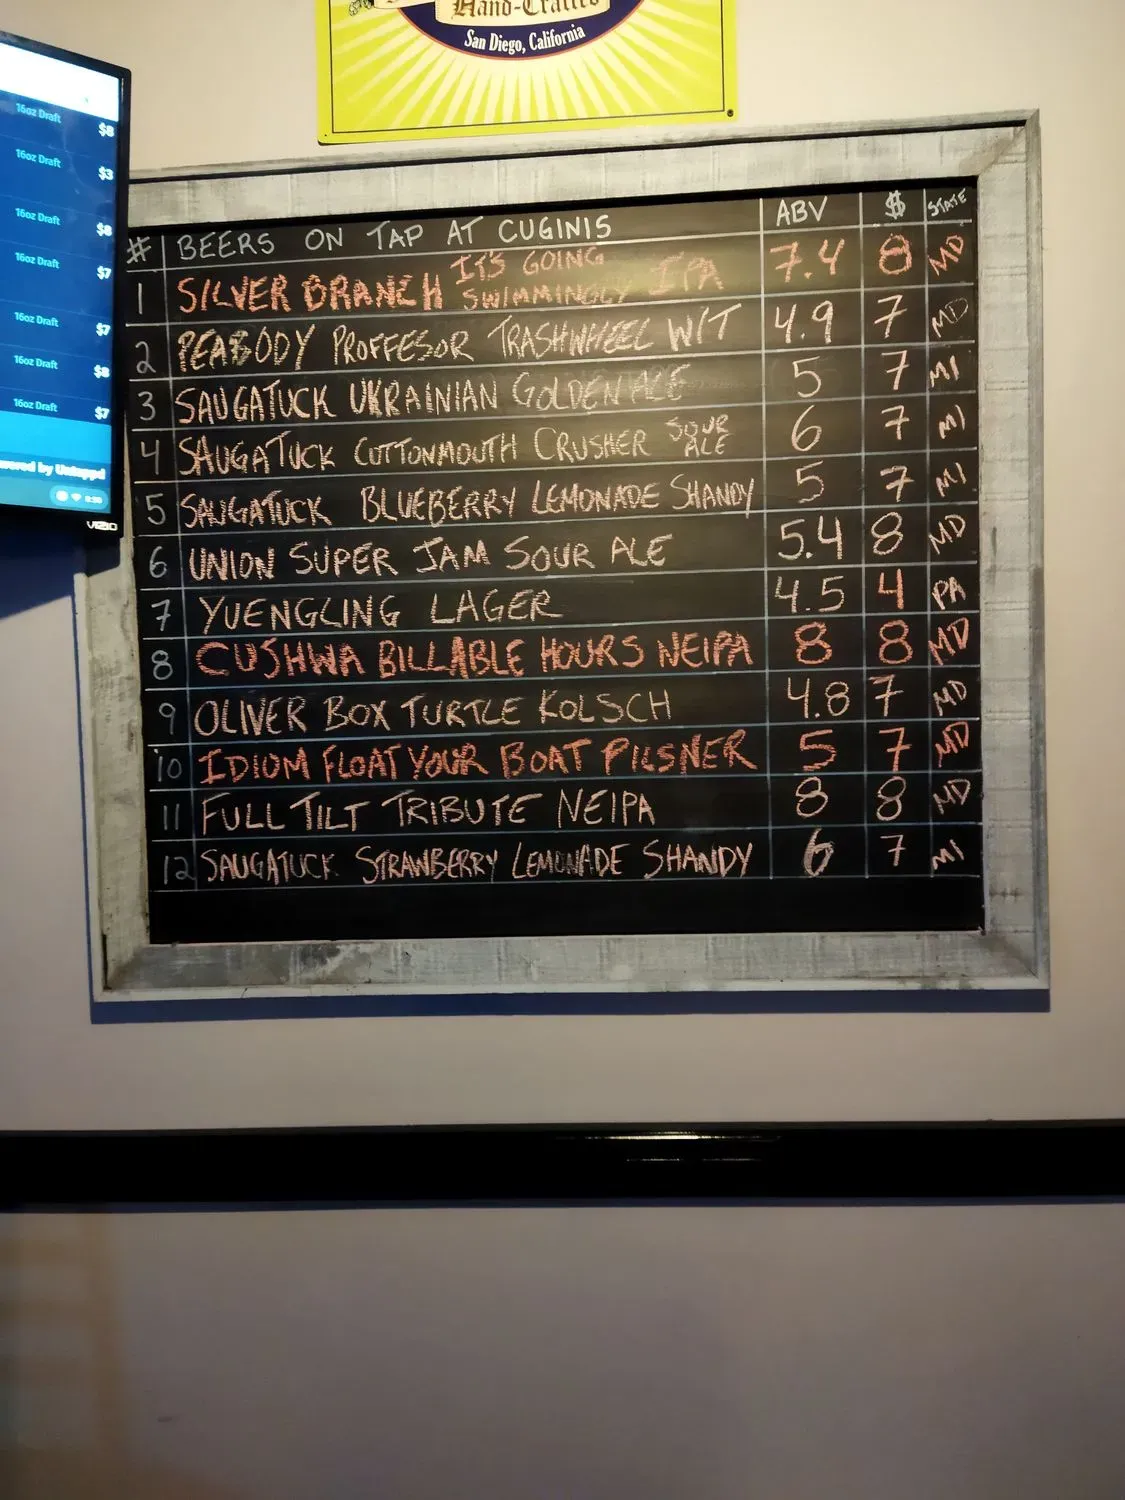 Hand-Crafted
San Diego, California
16oz Draft $8
16oz Draft $3
16oz Draft $8
16oz Draft $7
16oz Draft $7
16oz Draft $8
16oz Draft $7
wered by Untappd
VIZIO
# BEERS ON TAP AT CUGINIS ABV $ STATE
1 SILVER BRANCH IT'S GOING SWIMMINGLY IPA 7.4 8 MD
2 PEABODY PROFFESOR TRASHWHEEL WIT 4.9 7 MD
3 SAUGATUCK UKRAINIAN GOLDEN ALE 5 7 MI
4 SAUGATUCK COTTONMOUTH CRUSHER SOUR ALE 6 7 MI
5 SAUGATUCK BLUEBERRY LEMONADE SHANDY 5 7 MI
6 UNION SUPER JAM SOUR ALE 5.4 8 MD
7 YUENGLING LAGER 4.5 4 PA
8 CUSHWA BILLABLE HOURS NEIPA 8 8 MD
9 OLIVER BOX TURTLE KOLSCH 4.8 7 MD
10 IDIOM FLOAT YOUR BOAT PILSNER 5 7 MD
11 FULL TILT TRIBUTE NEIPA 8 8 MD
12 SAUGATUCK STRAWBERRY LEMONADE SHANDY 6 7 MI